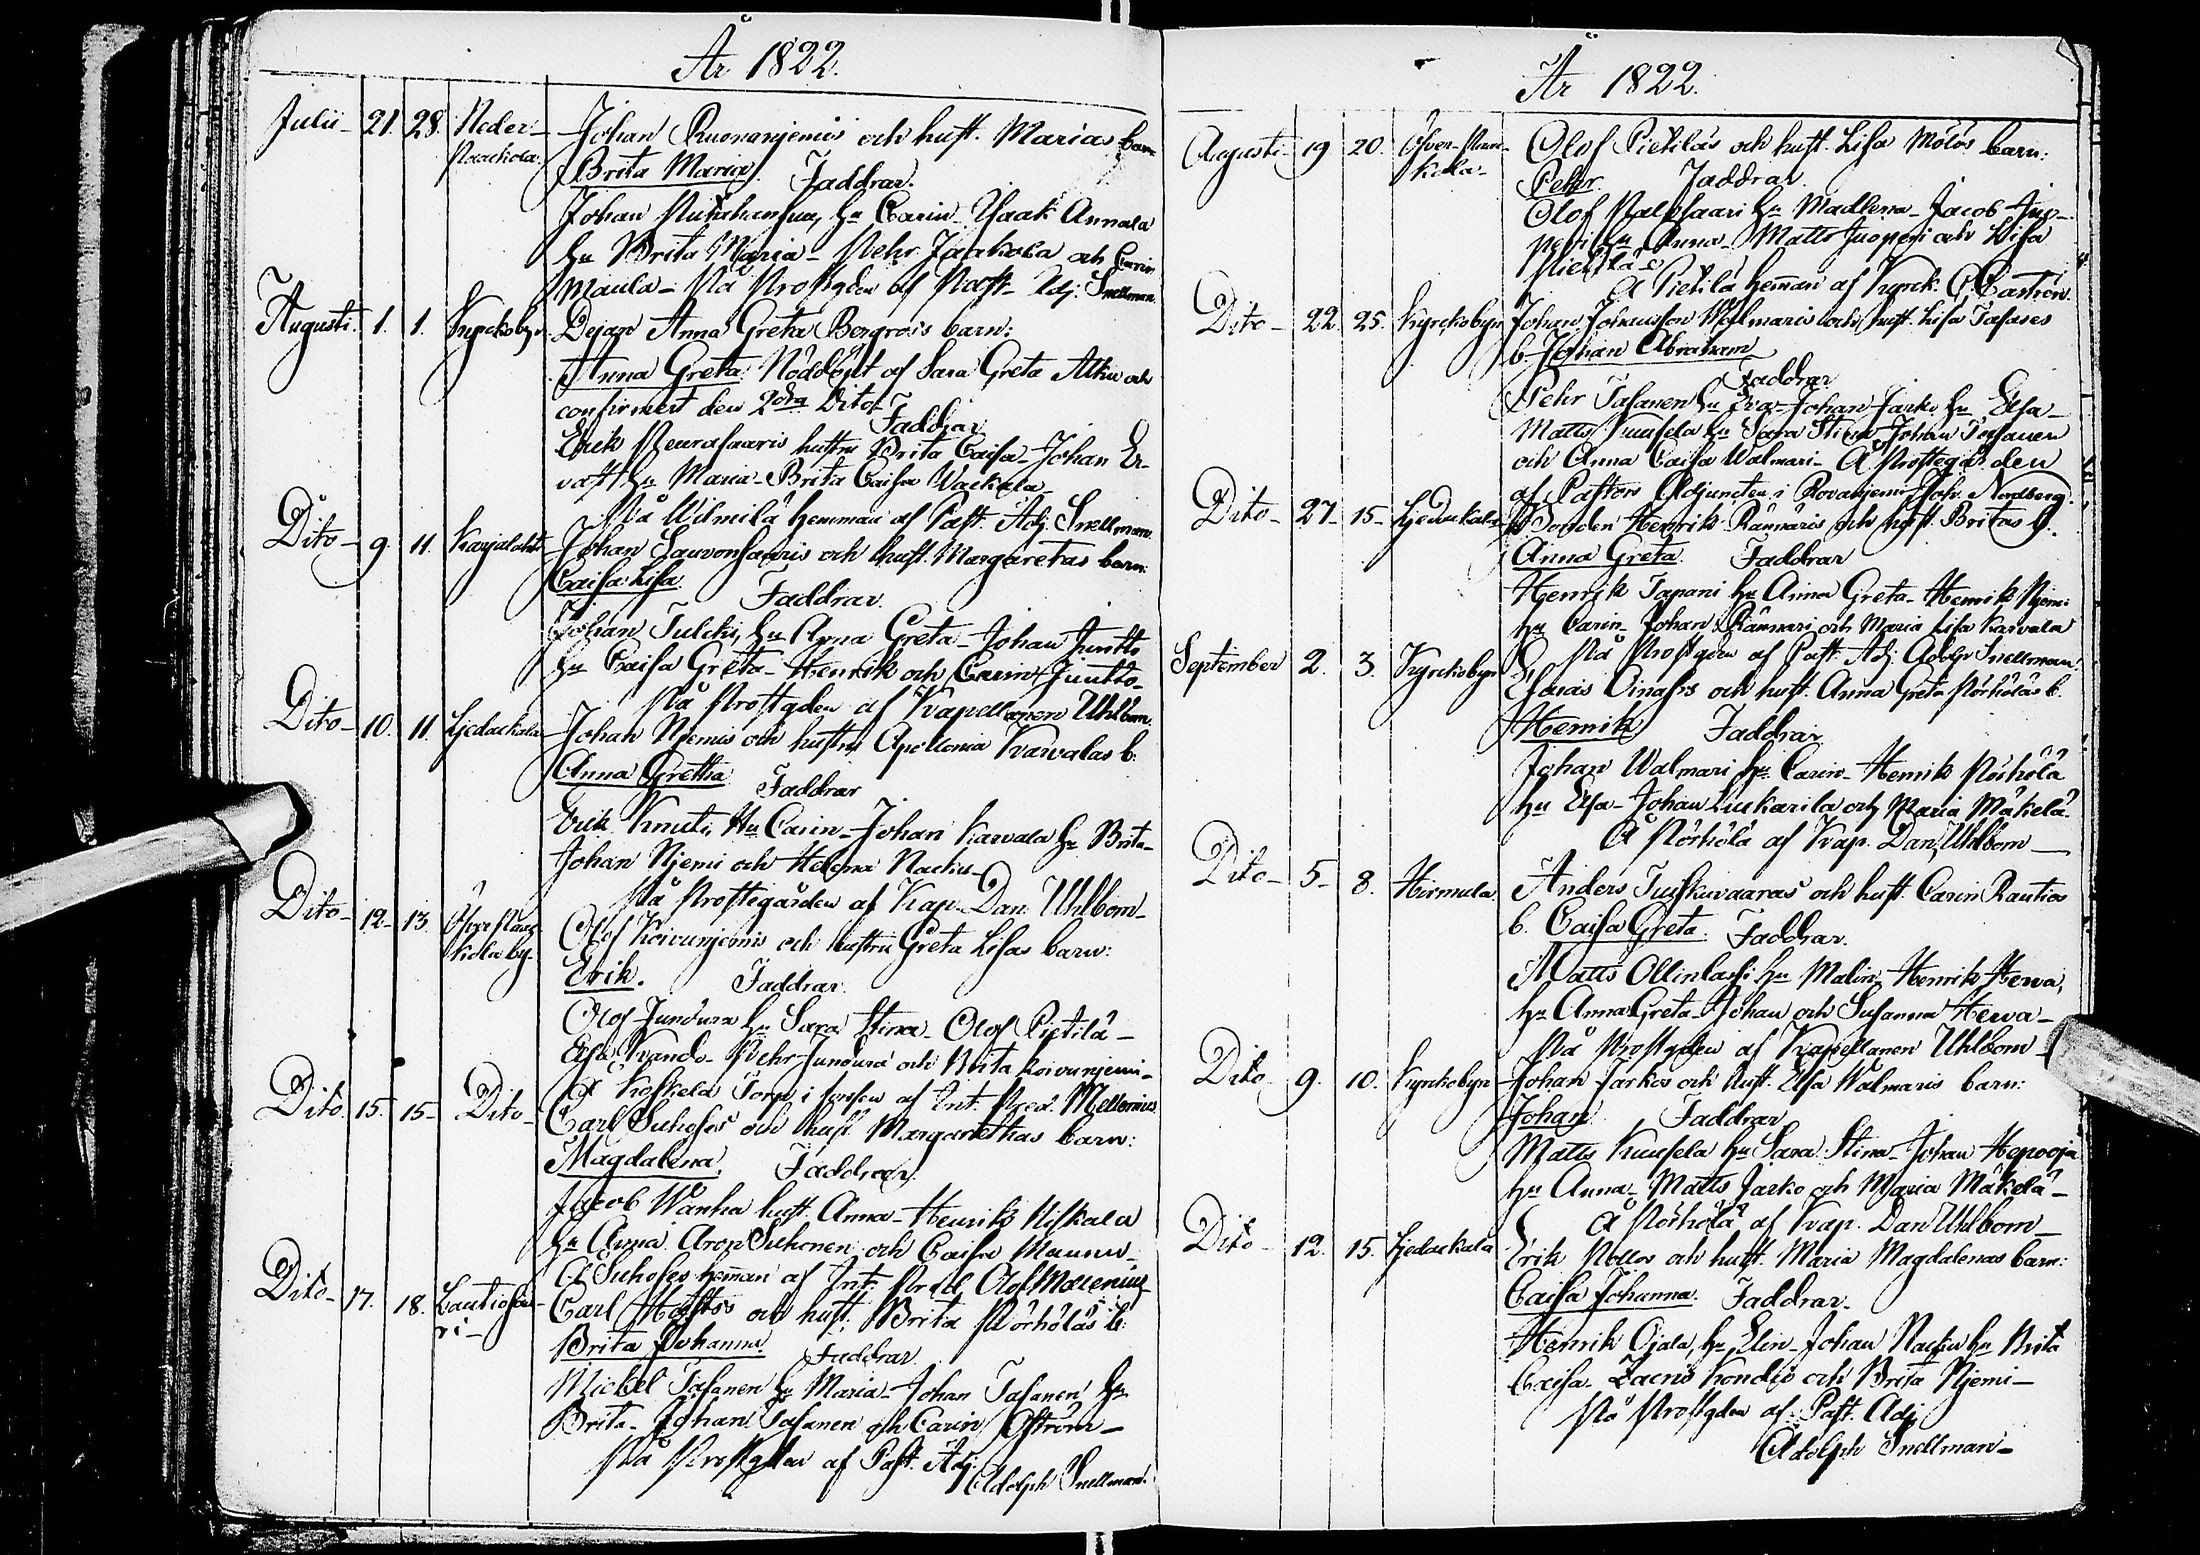 År 1822.
Julii 21. 28. Neder-
Paackola.
Johan Ruonanjemis och hust. Marias barn
Brita Maria. Faddrar.
Johan hu Carin - Isaak Annala
hu Brita Maria - Pehr Jaakola och Carin
Maula - På Prostgden af Past. Adj. Snellman.
Augusti. 1. 1. Kyrckobyn
Dejan Anna Greta Bergrois barn:
Anna Greta. Nöddöpt af Sara Greta Alkio och
confirmert den 2dra Dito. Faddrar
Erik Peurasaaris hustru Brita Caisa - Johan Er-
vast hu Maria - Brita Caisa Wackala
På Wilmilä hemman af Past. Adj. Snellman.
Dito - 9. 11. Karjalahti
Johan Sauvonsaaris och hust. Margaretas barn:
Caisa Lisa. Faddrar.
Johan Tulcki, hu Anna Greta - Johan Juntto
hu Caisa Greta - Henrik och Carin Juntto -
På Prostgden af Kapellanen Uhlbom.
Dito - 10. 11. Liedackala
Johan Njemis och hustru Apollonia Karvalas b.
Anna Gretha. Faddrar
Erik Knuti, Hu Carin - Johan Karvala hu Brita -
Johan Njemi och Helena Nackus -
På Prostegården af Kap. Dan. Uhlbom -
Dito - 12 - 13. Öfver Paac-
kola by.
Olof Koivunjemis och hustru Greta Lisas barn:
Erik. Faddrar.
Olof Jundura hu Sara Stina - Olof Pietilä -
Elsa Kando - Pehr Jundura och Brita Koivunjemi -
Å Koskela Torp i af Int. Pred. Mellenius
Dito. 15. 15 - Dito -
Carl Suhoses och hust. Margarethas barn:
Magdalena. Faddrar.
Jacob Wanha hust. Anna - Henrik Niskala
hu Anna. Aron Suhonen och Caisa Maunu -
Å Suhoses heman af Int. Pred. Olof Mellenius
Dito - 17. 18. Lautiosaa-
ri -
Carl och hust. Brita Pörhöläs b:
Brita Johanna. Faddrar.
Mickel Tasanen hu Maria - Johan Tasanen hu
Brita - Johan Tasanen och Carin Öström -
På Prostgden af Past. Adj.
Adolph Snellman.
År 1822.
Augusti - 19 20. Öfver Paac-
kola -
Olof Pietiläs och hust. Lisa Mölös barn:
Pehr. Faddrar.
Olof Palosaari hu Madlena - Jacob Juo-
peri hu Anna - Matts Juoperi och Lisa
Pietilä -
Å Pietilä heman af Kyrck. Castrén.
Dito - 22. 25. Kyrckobyn
Johan Johansson Walmaris och hust. Lisa Tasases
b. Johan Abraham
Faddrar
Pehr Tasanen hu Eva - Johan Jarko hu Elsa -
Matts Kuusela hu Sara Stina - Johan Tasanen
och Anna Caisa Walmari - Å Prostegården
af Pastors Adjuncten i Rovanjemi Joh. Nordberg.
Dito - 27 - 15 - Liedackala
Bonden Henrik Rännäris och hust. Britas b.
Anna Greta. Faddrar
Henrik Tapani hu Anna Greta - Henrik Njemi
hu Carin - Johan Rännäri och Maria Lisa Karvala
På Prostgden af Past. Adj. Adolph Snellman.
September 2. 3. Kyrckobyn
Esaias Oinas's och hust. Anna Greta Pörhöläs b.
Henrik Faddrar
Johan Walmari hu Carin - Henrik Pörhölä
hu Elsa - Johan Luckarila och Maria Mäkelä.
Å Pörhölä af Kap. Dan. Uhlbom -
Dito - 5 - 8. Hirmula
Anders Tuiskuvaaras och hust. Carin Rautios
b. Caisa Greta. Faddrar.
Matts Ollinlassi hu Malin - Henrik Herva,
hu Anna Greta - Johan och Susanna Herva -
På Prostgden af Kapellanen Uhlbom -
Dito - 9. 10. Kyrckobyn
Johan Jarkos och hust. Elsa Walmaris barn:
Johan. Faddrar
Matts Kuusela hu Sara Stina - Johan Hepooja
hu Anna - Matts Jarko och Maria Mäkelä -
Å Pörhölä af Kap. Dan Uhlbom -
Dito - 12. 15. Liedackala
Erik Pollos och hust. Maria Magdalenas barn:
Caisa Johanna. Faddrar.
Henrik Ojala, hu Elin - Johan Nackus hu Brita
Caisa - Kondio och Brita Njemi -
På Prostgden af Past. Adj.
Adolph Snellman -